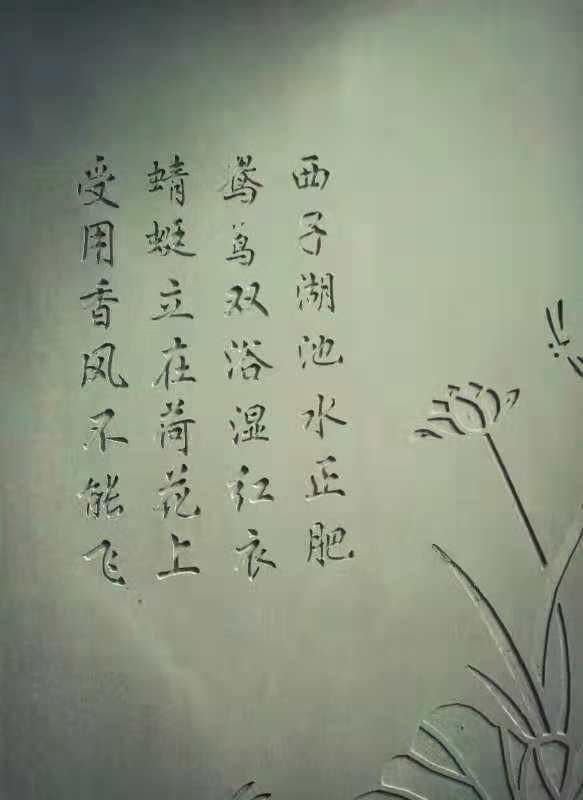 西子湖池水正肥
鸳鸯双浴湿红衣
蜻蜓立在荷花上
受用香风不能飞